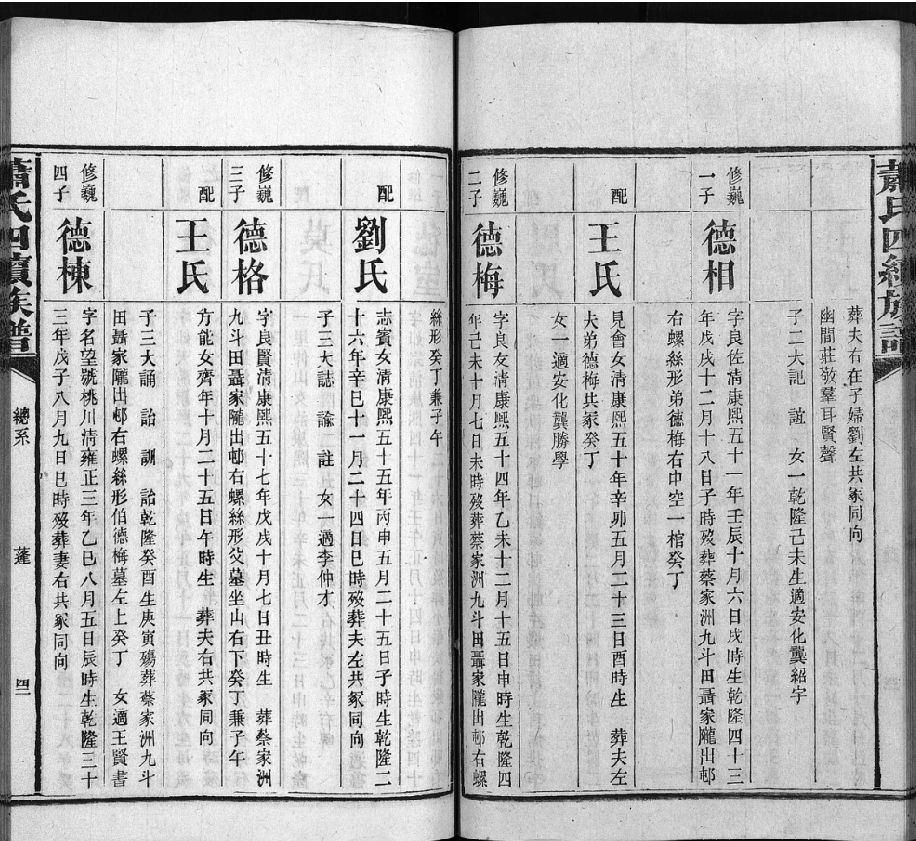 蕭氏四續族譜
葬夫右在子婦劉左共冢同向
幽閒莊敬羣耳賢聲
子二大記 誼 女一乾隆己未生適安化龔紹宇
修巍一子
德相
字良佐清康熙五十一年壬辰十月六日戌時生乾隆四十三
年戊戌十二月十八日子時歿葬蔡家洲九斗田聶家隴出邨
右螺絲形弟德梅右中空一棺癸丁
配
王氏
見會女清康熙五十年辛卯五月二十三日酉時生 葬夫左
夫弟德梅共冢癸丁
女一適安化龔勝學
修巍二子
德梅
字良友清康熙五十四年乙未十二月十五日申時生乾隆四
年己未十月七日未時歿葬蔡家洲九斗田聶家隴出邨右螺
絲形癸丁兼子午
配
劉氏
志賓女清康熙五十五年丙申五月二十五日子時生乾隆二
十六年辛巳十一月二十四日巳時歿葬夫左共冢同向
子三大誌 諭 註 女一適李仲才
修巍三子
德格
字良賢清康熙五十七年戊戌十月七日丑時生 葬蔡家洲
九斗田聶家隴出邨右螺絲形父墓坐山右下癸丁兼子午
配
王氏
方能女齊年十月二十五日午時生 葬夫右共冢同向
子三大誦 詒 訓 詒乾隆癸酉生庚寅殤葬蔡家洲九斗
田聶家隴出邨右螺絲形伯德梅墓左上癸丁 女適王賢書
修巍四子
德棟
字名望號桃川清雍正三年乙巳八月五日辰時生乾隆三十
三年戊子八月九日巳時歿葬妻右共冢同向
蕭氏四續族譜
總系
蓮
四二